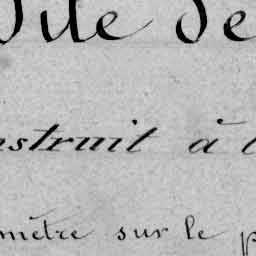 Vile de
nstruit à l
mètre sur le p